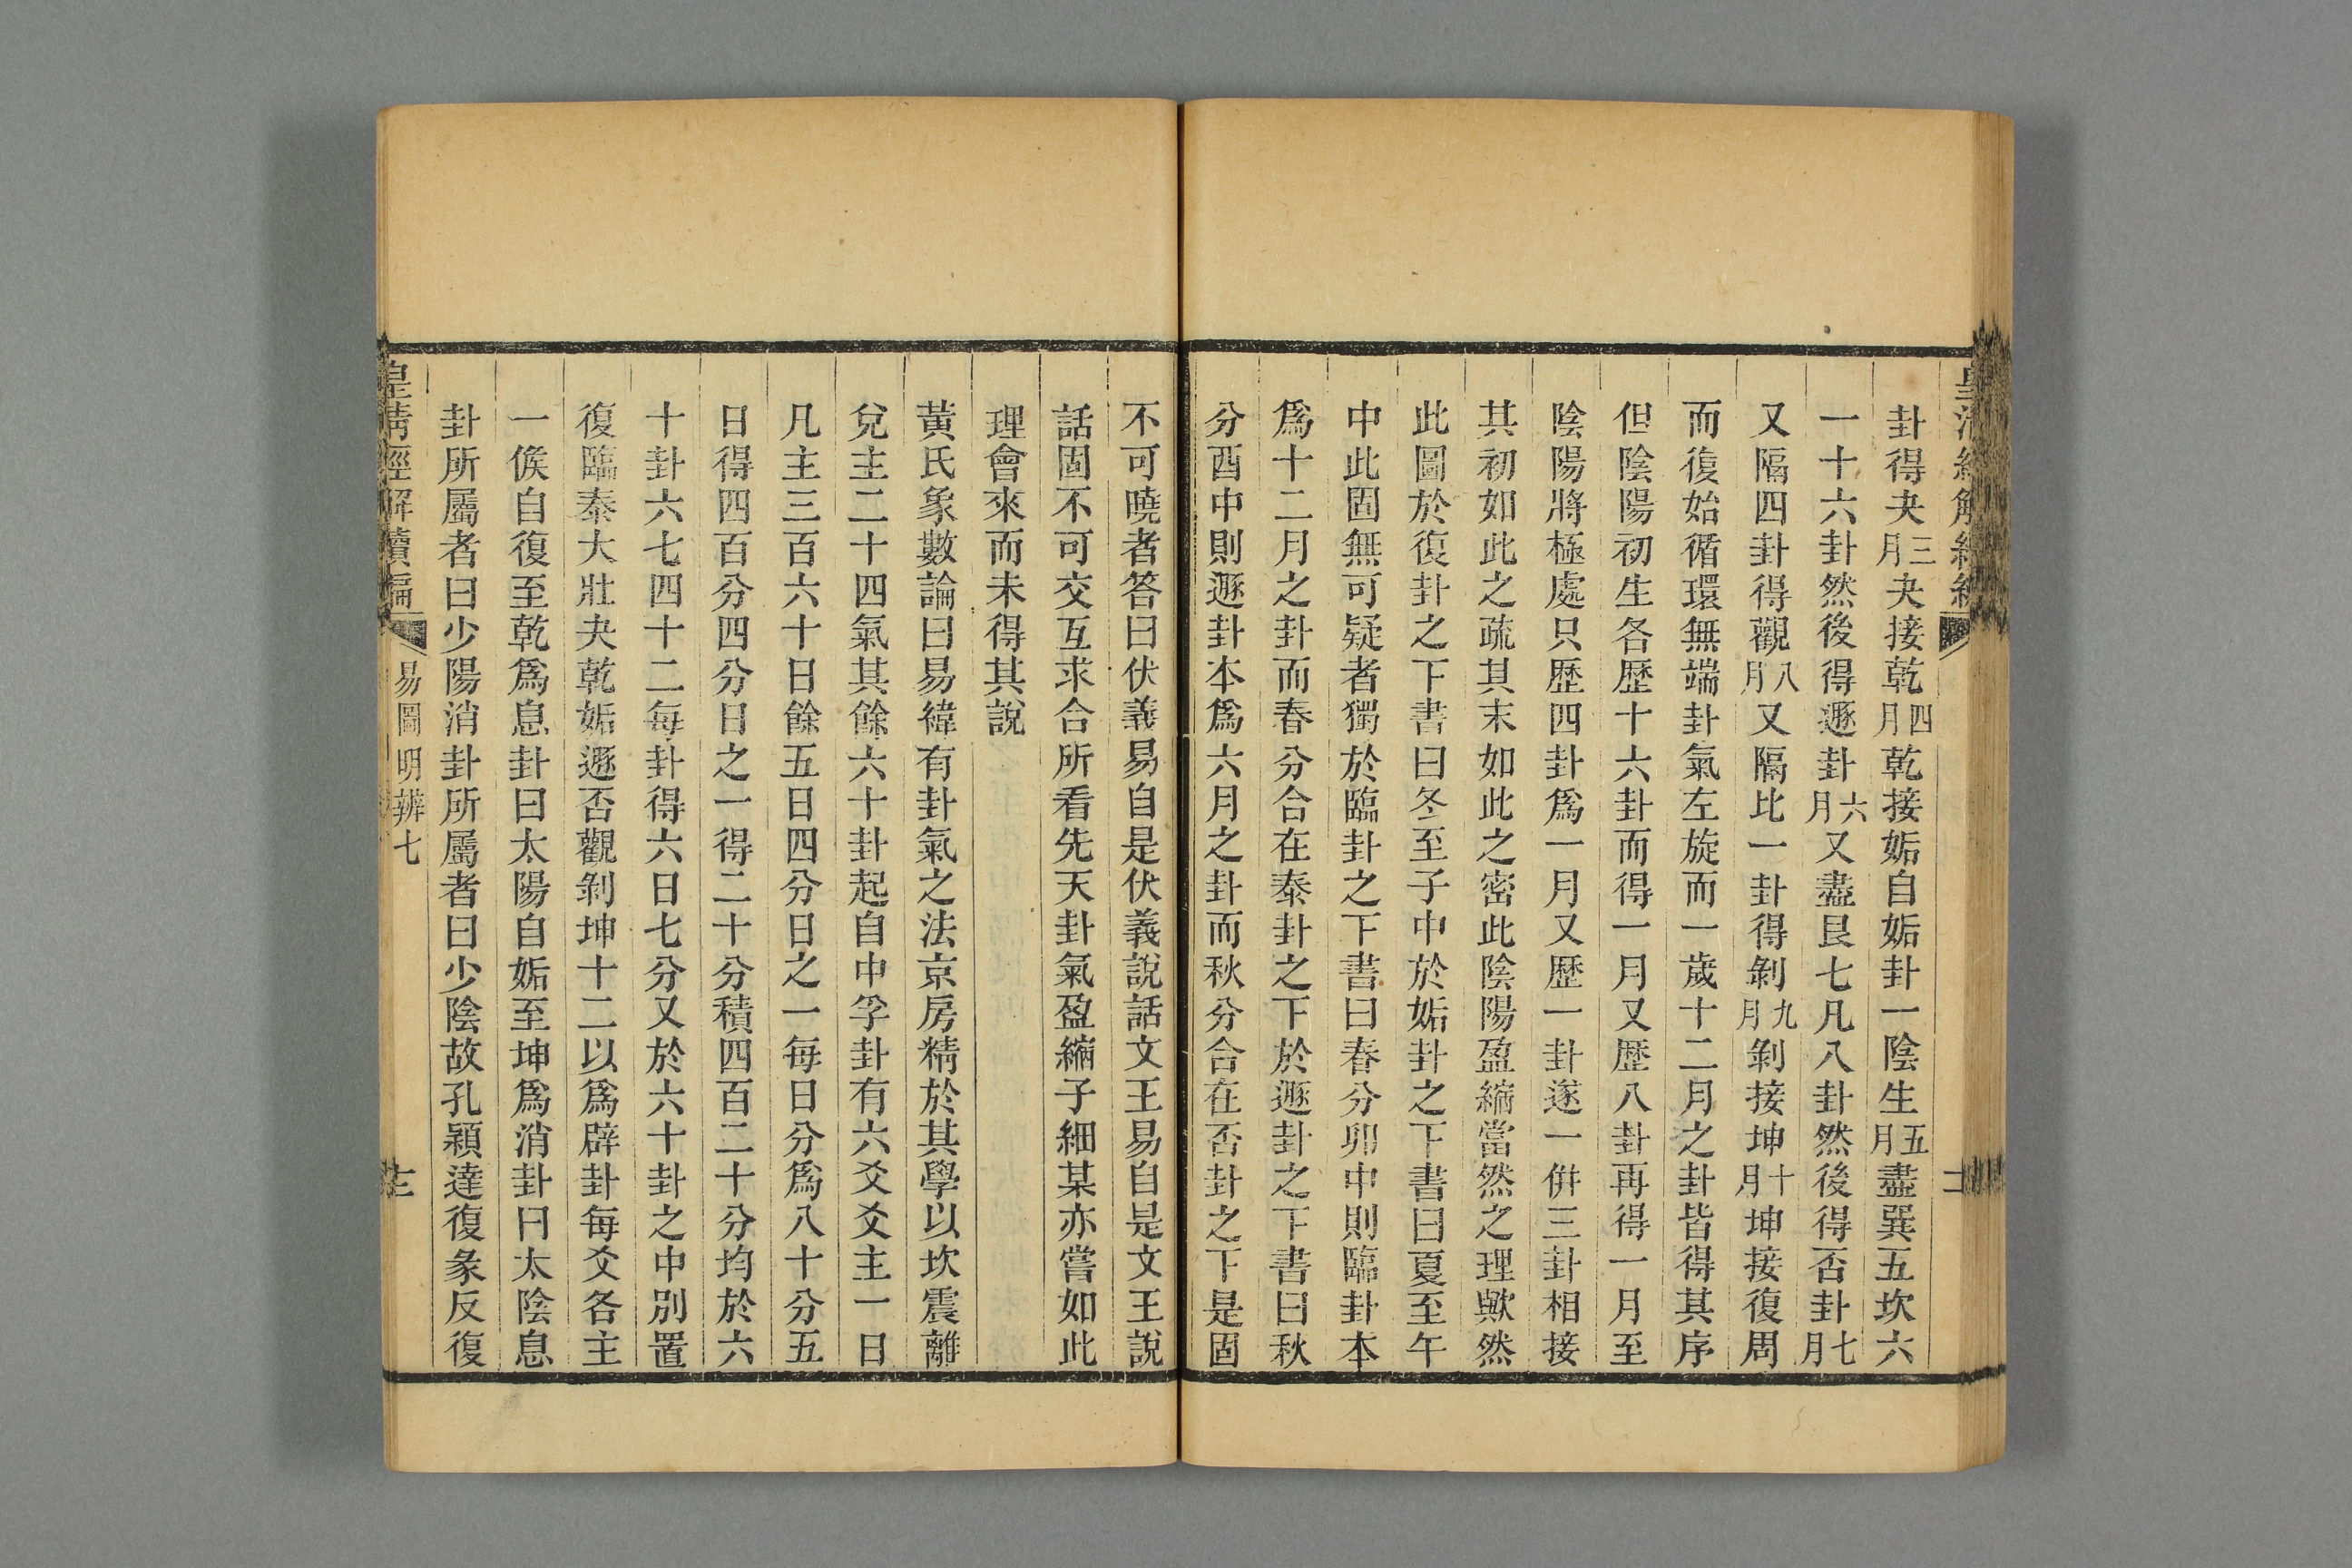 卦得夬三月夬接乾四月乾接姤自姤卦一陰生五月盡巽五坎六
一十六卦然後得遯卦六月又盡艮七凡八卦然後得否卦七月
又隔四卦得觀八月又隔比一卦得剝九月剝接坤十月坤接復周
而復始循環無端卦氣左旋而一歲十二月之卦皆得其序
但陰陽初生各歷十六卦而得一月又歷八卦再得一月至
陰陽將極處只歷四卦爲一月又歷一卦遂一倂三卦相接
其初如此之疏其末如此之密此陰陽盈縮當然之理歟然
此圖於復卦之下書曰冬至子中於姤卦之下書曰夏至午
中此固無可疑者獨於臨卦之下書曰春分卯中則臨卦本
爲十二月之卦而春分合在泰卦之下於遯卦之下書曰秋
分酉中則遯卦本爲六月之卦而秋分合在否卦之下是固
不可曉者答曰伏羲易自是伏羲說話文王易自是文王說
話固不可交互求合所看先天卦氣盈縮子細某亦嘗如此
理會來而未得其說
黃氏象數論曰易緯有卦氣之法京房精於其學以坎震離
兌主二十四氣其餘六十卦起自中孚卦有六爻爻主一日
凡主三百六十日餘五日四分日之一每日分爲八十分五
日得四百分四分日之一得二十分積四百二十分均於六
十卦六七四十二每卦得六日七分又於六十卦之中別置
復臨泰大壯夬乾姤遯否觀剝坤十二以爲辟卦每爻各主
一候自復至乾爲息卦曰太陽自姤至坤爲消卦曰太陰息
卦所屬者曰少陽消卦所屬者曰少陰故孔穎達復彖反復
皇清經解續編
易圖明辨七